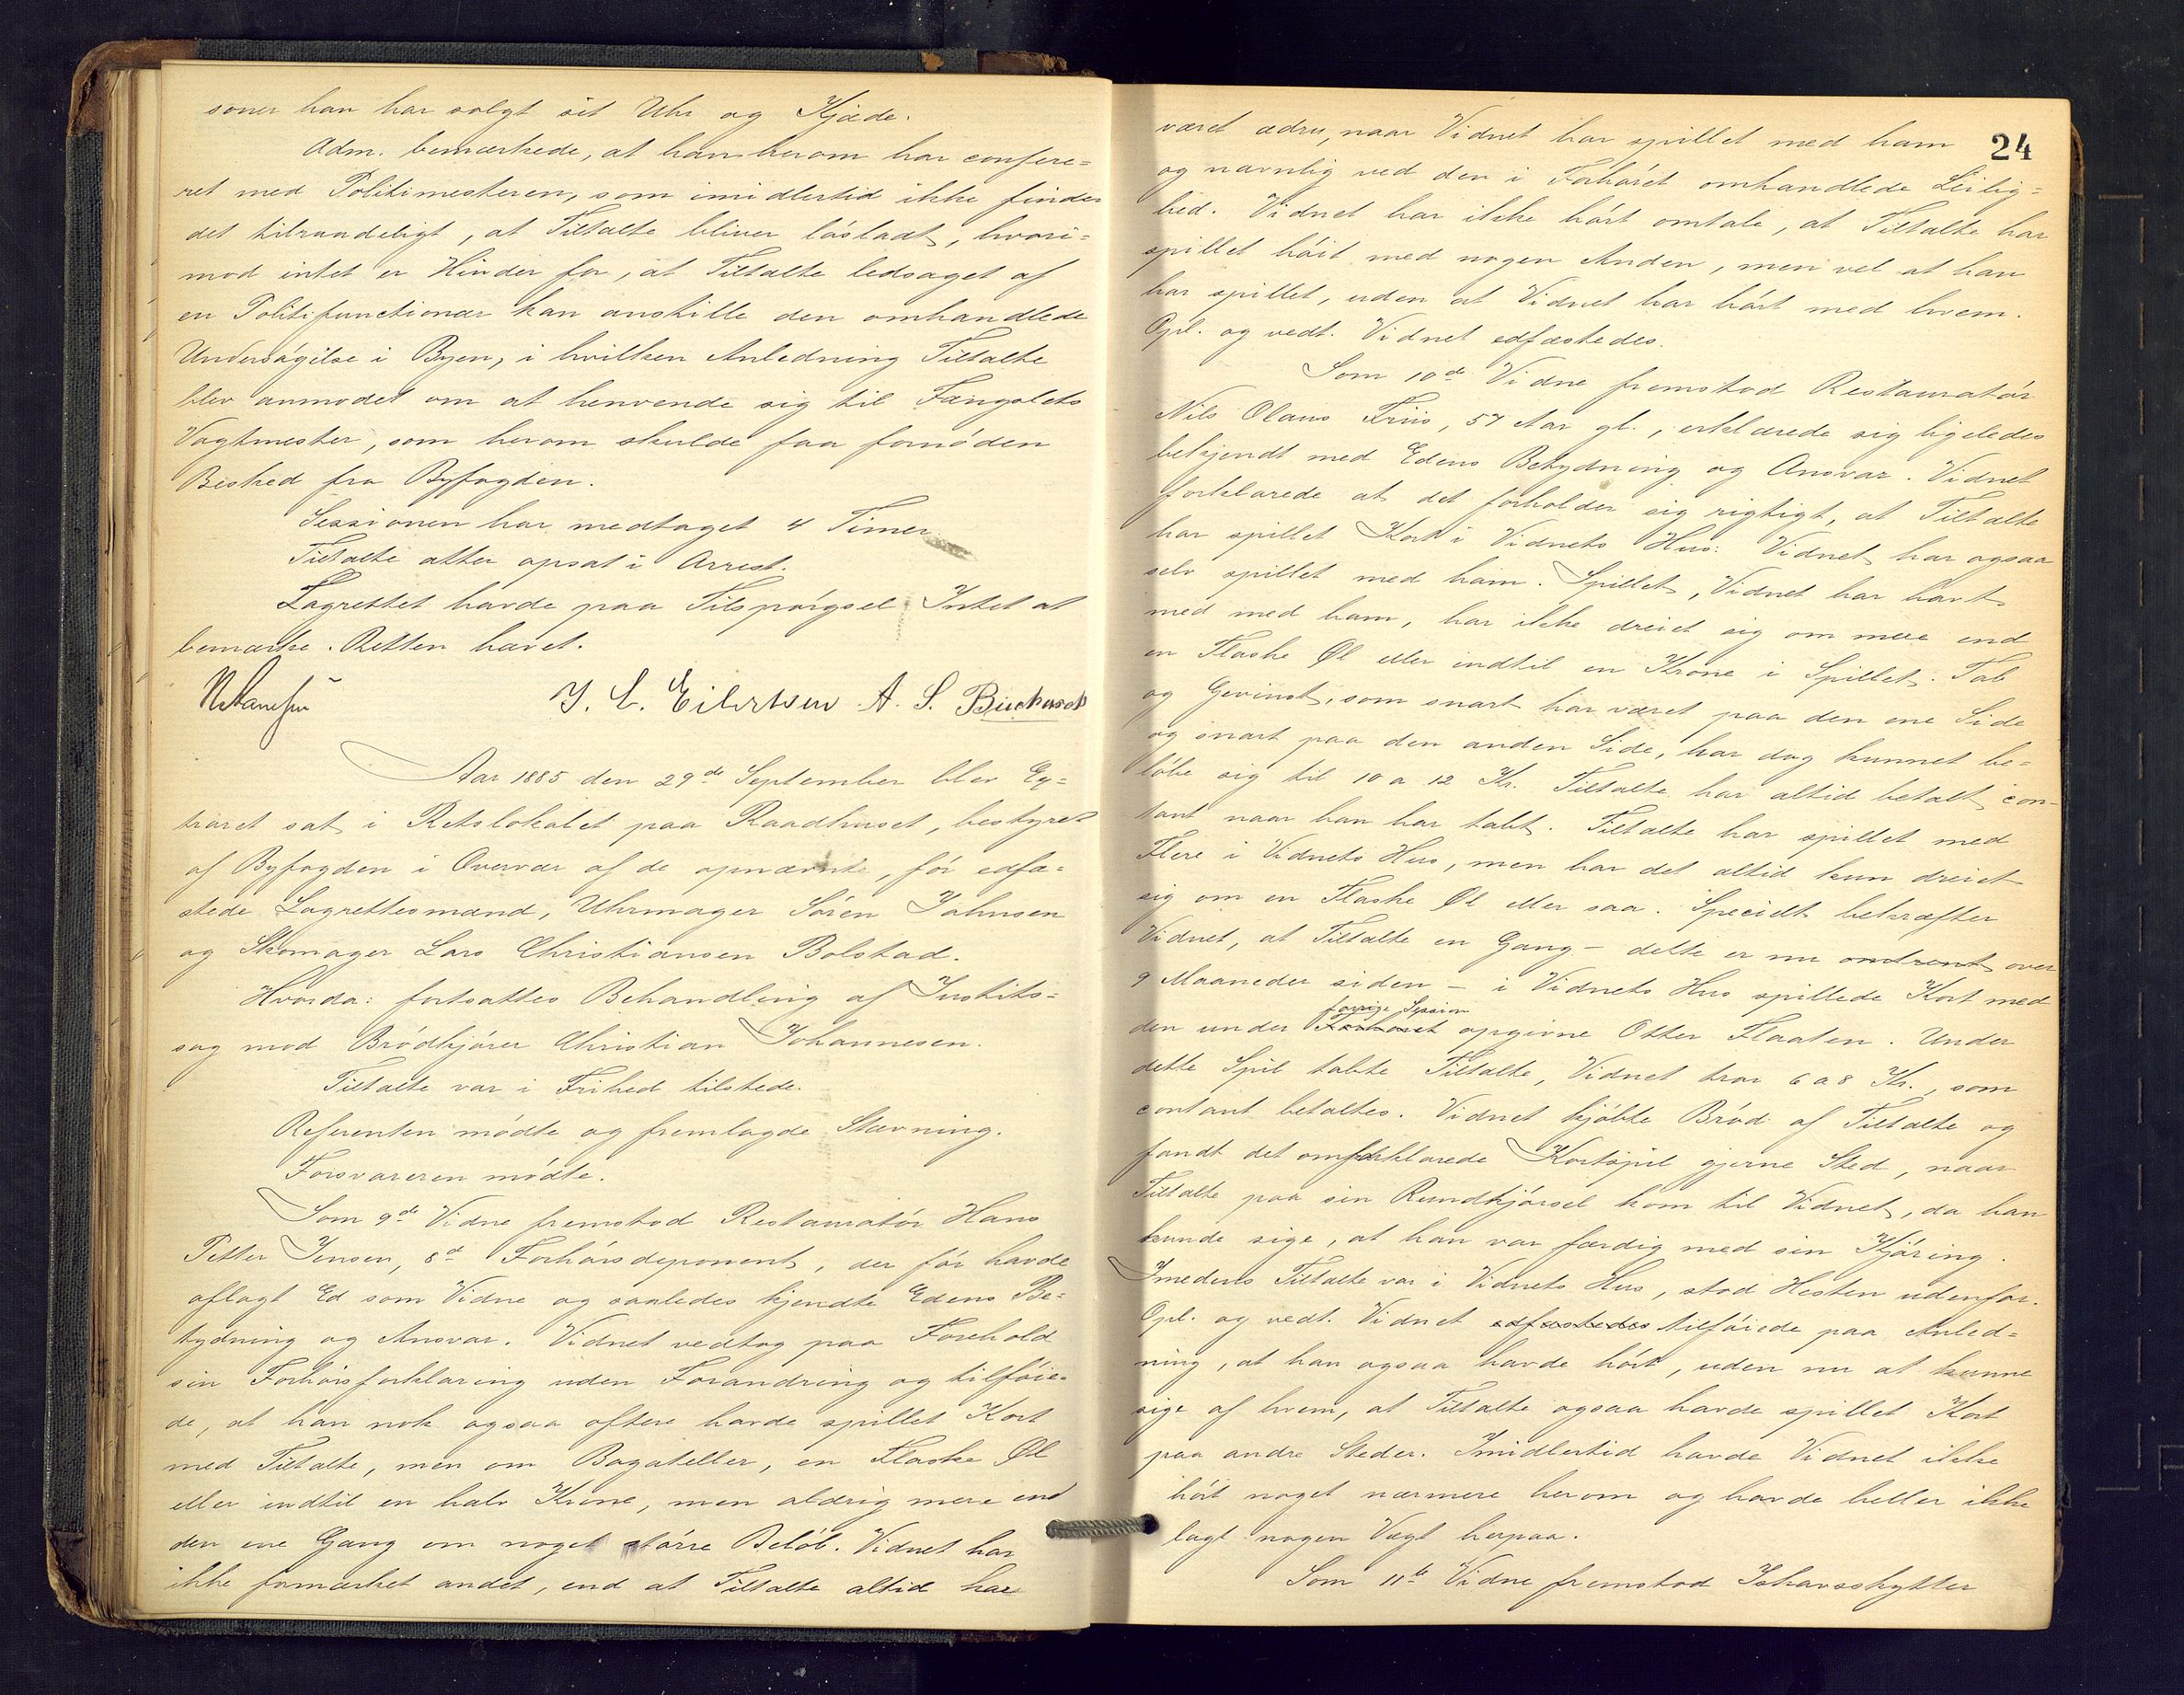 soner han har solgt sit Uhr og Kjæde.
Adm. bemærkede, at han herom har confere=
ret med Politimesteren, som imidlertid ikke finder
det tilraadeligt, at Tiltalte bliver løsladt, hvori=
mod intet er Hinder for, at Tiltalte ledsaget af
en Politifunctionær kan anstille den omhandlede
Undersøgelse i Byen, i hvilken Anledning Tiltalte
blev anmodet om at henvende sig til Fængslets
Vagtmester, som herom skulde faa fornøden
Besked fra Byfogden.
Sessionen har medtaget 4 Timer.
Tiltalte atter opsat i Arrest.
Lagrettet havde paa Tilspørgsel Intet at
bemærke. Retten hævet.
J. C. Eilertsen A. S. Buchardt
Aar 1885 den 29de September blev Ex=
traret sat i Retslokalet paa Raadhuset, bestyret
af Byfogden i Overvær af de opnævnte, før edfæ=
stede Lagrettesmænd, Uhrmager Søren Johnsen
og Skomager Lars Christiansen Bolstad.
Hvorda: fortsattes Behandling af Justits=
sag mod Brødkjører Christian Johannesen.
Tiltalte var i Frihed tilstede.
Referenten mødte og fremlagde Stævning.
Forsvareren mødte.
Som 9de Vidne fremstod Restauratør Hans
Petter Jensen, 8d Forhørsdeponent, der før havde
aflagt Ed som Vidne og saaledes kjendte Edens Be=
tydning og Ansvar. Vidnet vedtog paa Forehold
sin Forhørsforklaring uden Forandring og tilføie=
de, at han nok ogsaa oftere havde spillet Kort
med Tiltalte, men om Bagateller, en Flaske Øl
eller indtil en halv Krone, men aldrig mere end
den ene Gang om noget større Beløb. Vidnet har
ikke formærket andet, end at Tiltalte altid har
24
været ædru, naar Vidnet har spillet med ham
og navnlig ved den i Forhøret omhandlede Leilig=
hed. Vidnet har ikke hørt omtale, at Tiltalte har
spillet høit med nogen Anden, men vel at han
har spillet, uden at Vidnet har hørt med hvem.
Opl. og vedt. Vidnet edfæstedes.
Som 10de Vidne fremstod Restauratør
Nils Olaus Friis, 57 Aar gl., erklærede sig ligeledes
bekjendt med Edens Betydning og Ansvar. Vidnet
forklarede at det forholder sig rigtigt, at Tiltalte
har spillet Kort i Vidnets Hus: Vidnet har ogsaa
selv spillet med ham. Spillet, Vidnet har havt
med med ham, har ikke dreiet sig om mere end
en Flaske Øl eller indtil en Krone i Spillet. Tab
og Gevinst, som snart har været paa den ene Side
og snart paa den anden Side, har dog kunnet be=
løbe sig til 10 a 12 Kr. Tiltalte har altid betalt con-
tant naar han har tabt. Tiltalte har spillet med
Flere i Vidnets Hus, men har det altid kun dreiet
sig om en Flaske Øl eller saa. Specielt bekræfter
Vidnet, at Tiltalte en Gang - dette er nu omtrent over
9 Maaneder siden - i Vidnets Hus spillede Kort med
forrige Session
den under Forhøret opgivne Otter Flaaten. Under
dette Spil tabte Tiltalte, Vidnet tror 6 a 8 Kr., som
contant betaltes. Vidnet kjøbte Brød af Tiltalte og
fandt det omforklarede Kortspil gjerne Sted, naar
Tiltalte paa sin Rundkjørsel kom til Vidnet, da han
kunde sige, at han var færdig med sin Kjøring.
Imedens Tiltalte var i Vidnets Hus, stod Hesten udenfor.
Opl. og vedt. Vidnet edfæstedes tilføiede paa Anled=
ning, at han ogsaa havde hørt, uden nu at kunne
sige af hvem, at Tiltalte ogsaa havde spillet Kort
paa andre Steder. Imidlertid havde Vidnet ikke
hørt noget nærmere herom og havde heller ikke
lagt nogen Vægt herpaa.
Som 11te Vidne fremstod Ishavsskytter